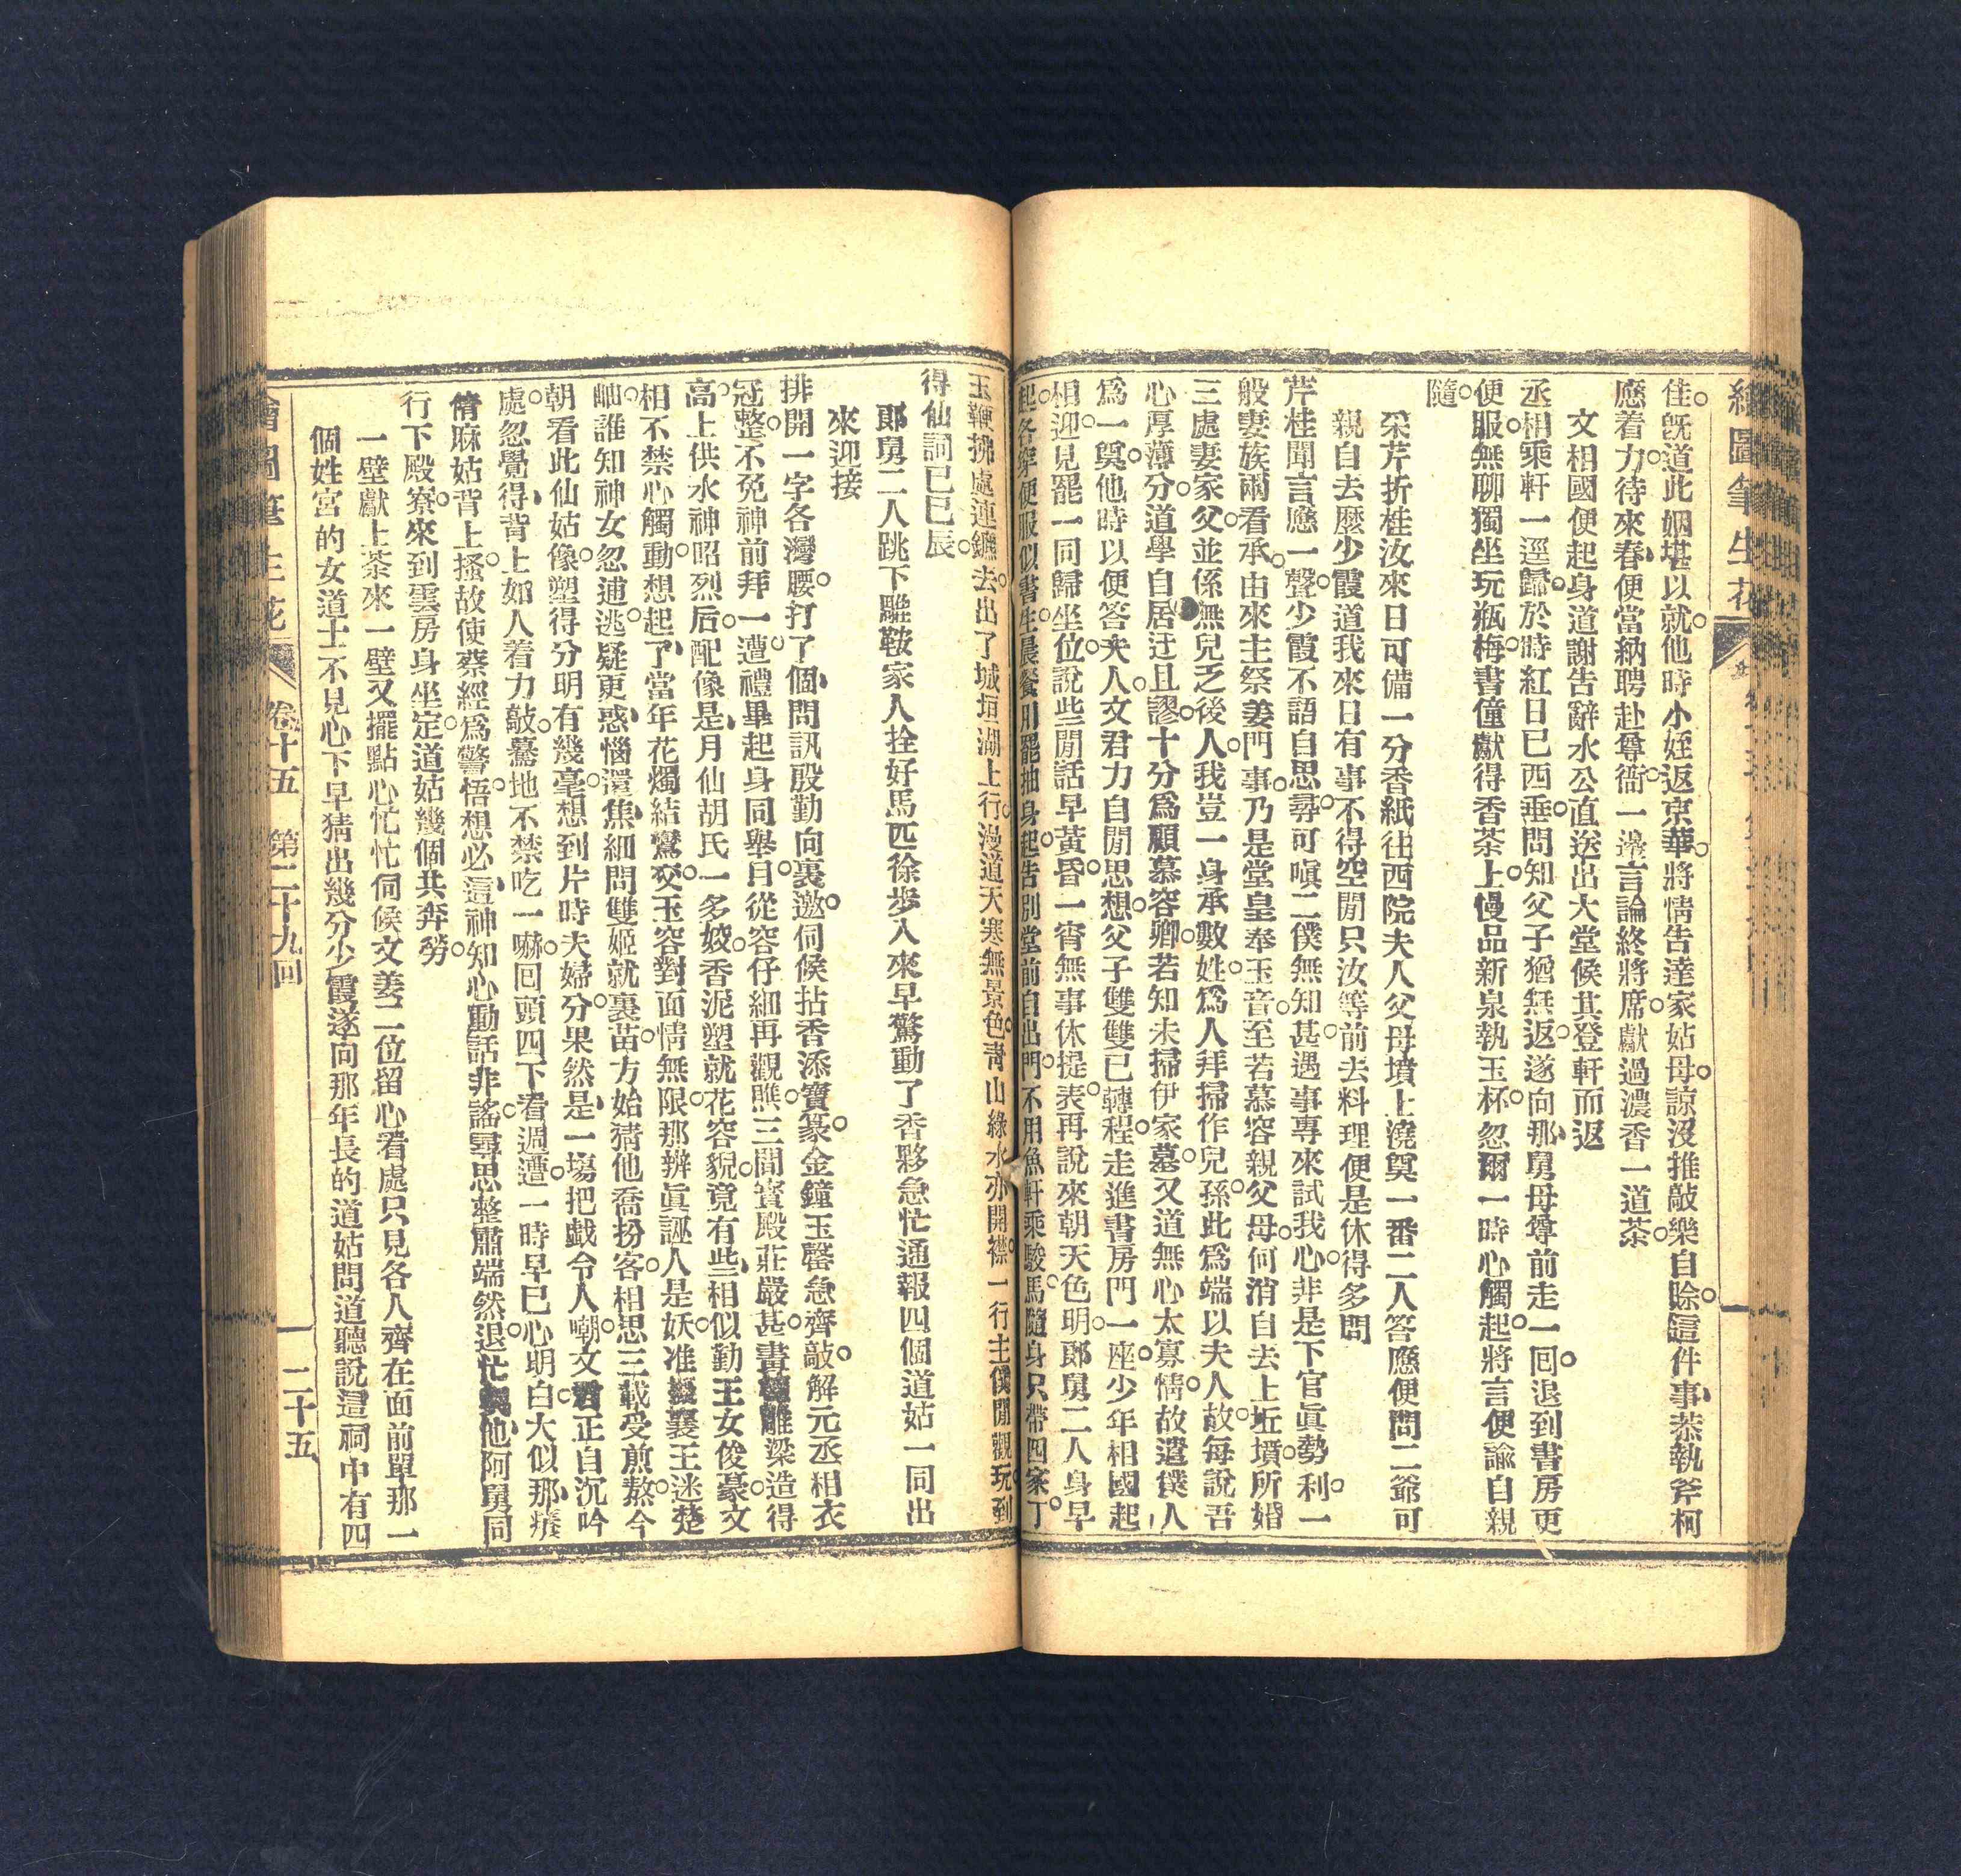 繪圖筆生花
佳。旣道此姻堪以就。他時小姪返京華。將情告達家姑母。諒沒推敲樂自賒。這件事恭執斧柯
應着力。待來春便當納聘赴尊衙。一邊言論終將席。獻過濃香一道茶。
文相國便起身道謝告辭水公直送出大堂候其登軒而返
丞相乘軒一逕歸。於時紅日已西垂。問知父子猶無返。遂向那舅母尊前走一囘。退到書房更
便服。無聊獨坐玩瓶梅。書僮獻得香茶上。慢品新泉執玉杯。忽爾一時心觸起。將言便諭自親
隨。
采芹折桂汝來日可備一分香紙往西院夫人父母墳上澆奠一番二人答應便問二爺可
親自去麼少霞道我來日有事不得空閒只汝等前去料理便是休得多問
芹桂聞言應一聲。少霞不語自思尋。可嗔二僕無知甚。遇事專來試我心。非是下官眞勢利。一
般妻族兩看承。由來主祭姜門事。乃是堂皇奉玉音。至若慕容親父母。何消自去上坵墳。所婚
三處妻家父。並係無兒乏後人。我豈一身承數姓。爲人拜掃作兒孫。此爲端以夫人故。每說吾
心厚薄分。道學自居迂且謬。十分爲顧慕容卿。若知未掃伊家墓。又道無心太寡情。故遣僕人
爲一奠。他時以便答夫人。文君力自閒思想。父子雙雙已轉程。走進書房門一座。少年相國起
相迎。見罷一同歸坐位。說些閒話早黃昏。一宵無事休提表。再說來朝天色明。郞舅二人身早
起。各穿便服似書生。晨餐用罷抽身起。告別堂前自出門。不用魚軒乘駿馬。隨身只帶四家丁。
玉鞭拂處連鑣去。出了城垣湖上行。漫道天寒無景色。靑山綠水亦開襟。一行主僕閒觀玩。到
得仙詞已巳辰。
郞舅二人跳下雕鞍家人拴好馬匹徐步入來早驚動了香夥急忙通報四個道姑一同出
來迎接
排開一字各灣腰。打了個問訊殷勤向裏邀。伺候拈香添寶篆。金鐘玉罄急齊敲。解元丞相衣
冠整。不免神前拜一遭。禮畢起身同舉目。從容仔細再觀瞧。三間寶殿莊嚴甚。畫棟雕梁造得
高。上供水神昭烈后。配像是月仙胡氏一多姣。香泥塑就花容貌。竟有些相似勤王女俊豪。文
相不禁心觸動。想起了當年花燭結鸞交。玉容對面情無限。那辨眞誣人是妖。准擬襄王迷楚
岫。誰知神女忽逋逃。疑更惑惱還焦。細問雙姬就裏苗。方始猜他喬扮客。相思三載受煎熬。今
朝看此仙姑像。塑得分明有幾毫。想到片時夫婦分。果然是一塲把戲令人嘲。文君正自沉吟
處。忽覺得背上如人着力敲。驀地不禁吃一嚇。囘頭四下看週遭。一時早已心明白。大似那癢
倩麻姑背上搔。故使蔡經爲警悟。想必這神知心動話非謠。尋思整肅端然退。忙喚他阿舅同
行下殿寮。來到雲房身坐定。道姑幾個共奔勞。
一壁獻上茶來一壁又擺點心忙忙伺候文姜二位留心看處只見各人齊在面前單那一
個姓宮的女道士不見心下早猜出幾分少霞遂向那年長的道姑問道聽說這祠中有四
繪圖筆生花 卷十五 第二十九回 二十五